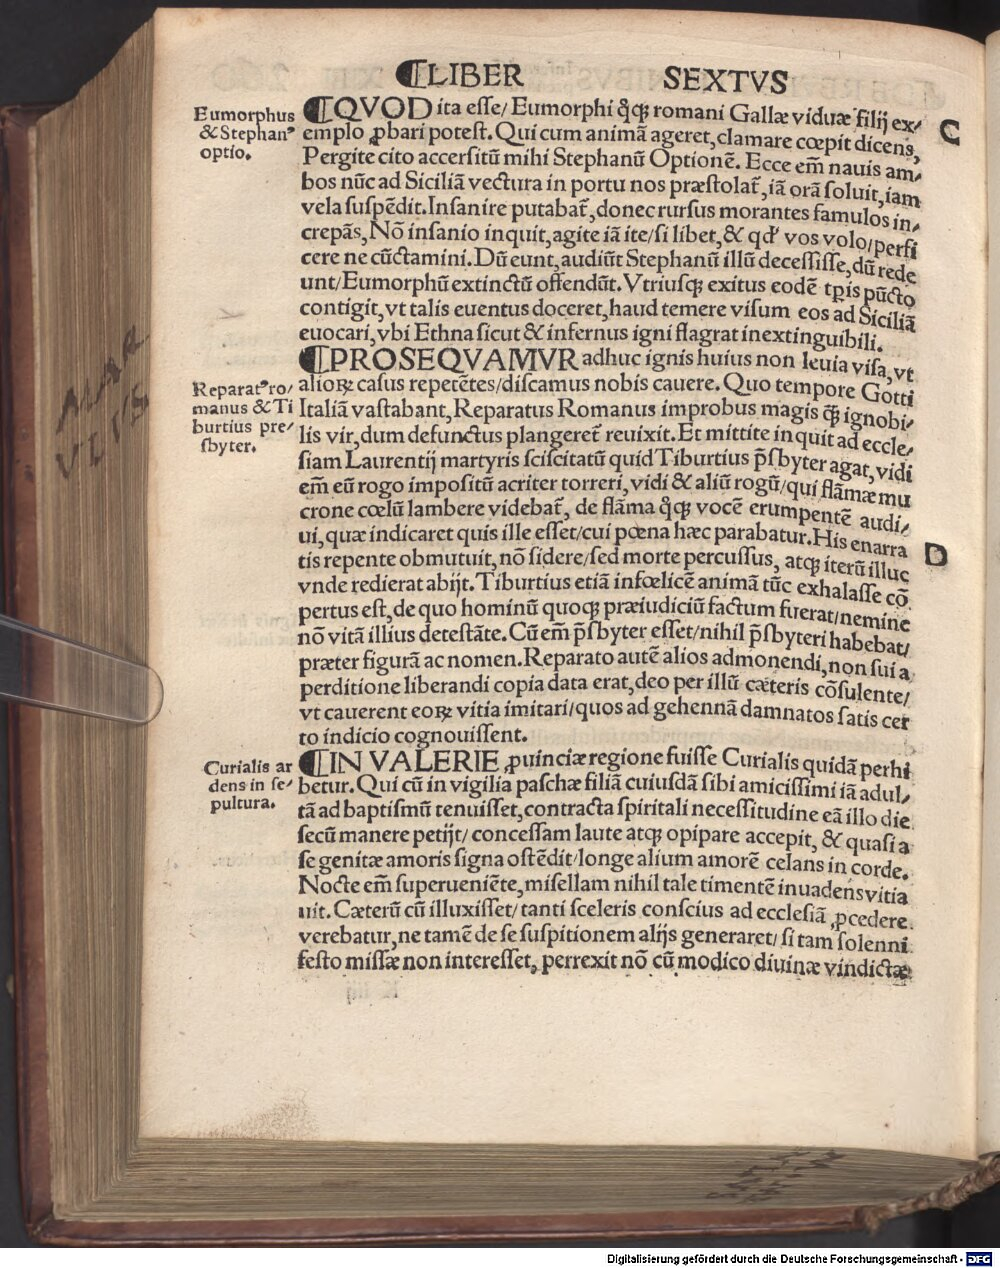 ⸿LIBER SEXTVS
Eumorphus
& Stephanꝰ
optio.
⸿QVOD ita esse/ Eumorphi q̊qꝫ romani Gallæ viduæ filij ex⸗
emplo ꝓbari potest. Qui cum animā ageret, clamare cœpit dicens,
Pergite cito accersitū mihi Stephanū Optionē. Ecce em̄ nauis am⸗
bos nūc ad Siciliā vectura in portu nos præstolat̄, iā orā soluit, iam
vela suspēdit. Insanire putabat̄, donec rursus morantes famulos in⸗
crepās, Nō insanio inquit, agite iā ite/ si libet, & qđ vos volo/ perfi
cere ne cūctamini. Dū eunt, audiūt Stephanū illū decessisse, dū rede
unt/ Eumorphū extinctū offendūt. Vtriusqꝫ exitus eodē tp̄is pūcto
contigit, vt talis euentus doceret, haud temere visum eos ad Siciliā
euocari, vbi Ethna sicut & infernus igni flagrat inextinguibili.
C
Reparatꝰ ro⸗
manus & Ti
burtius pre⸗
sbyter.
⸿PROSEQVAMVR adhuc ignis huius non leuia visa, vt
alioꝝ casus repetētes/ discamus nobis cauere. Quo tempore Gotti
Italiā vastabant, Reparatus Romanus improbus magis q̄ꝫ ignobi⸗
lis vir, dum defunctus plangeret̄ reuixit. Et mittite inquit ad eccle⸗
siam Laurentij martyris sciscitatū quid Tiburtius p̄sbyter agat, vidi
em̄ eū rogo impositū acriter torreri, vidi & aliū rogū/ qui flāmæ mu
crone cœlū lambere videbat̄, de flāma q̊qꝫ vocē erumpentē audi⸗
ui, quæ indicaret quis ille esset/ cui pœna hæc parabatur. His enarra
tis repente obmutuit, nō sidere/ sed morte percussus, atqꝫ iterū illuc
vnde redierat abijt. Tiburtius etiā infœlicē animā tūc exhalasse cō
pertus est, de quo hominū quoqꝫ præiudiciū factum fuerat/ nemine
nō vitā illius detestāte. Cū em̄ p̄sbyter esset/ nihil p̄sbyteri habebat/
præter figurā ac nomen. Reparato autē alios admonendi, non sui a
perditione liberandi copia data erat, deo per illū cæteris cōsulente/
vt cauerent eoꝝ vitia imitari/ quos ad gehennā damnatos satis cer
to indicio cognouissent.
D
Curialis ar
dens in se⸗
pultura.
⸿IN VALERIE ꝓuinciæ regione fuisse Curialis quidā perhi
betur. Qui cū in vigilia paschæ filiā cuiusdā sibi amicissimi iā adul⸗
tā ad baptismū tenuisset, contracta spiritali necessitudine eā illo die
secū manere petijt/ concessam laute atqꝫ opipare accepit, & quasi a
se genitæ amoris signa ostēdit/ longe alium amorē celans in corde.
Nocte em̄ superueniēte, misellam nihil tale timentē inuadens vitia
uit. Cæterū cū illuxisset/ tanti sceleris conscius ad ecclesiā ꝓcedere
verebatur, ne tamē de se suspitionem alijs generaret/ si tam solenni
festo missæ non interesset, perrexit nō cū modico diuinæ vindictæ
MAR
VLVS
Digitalisierung gefördert durch die Deutsche Forschungsgemeinschaft - DFG